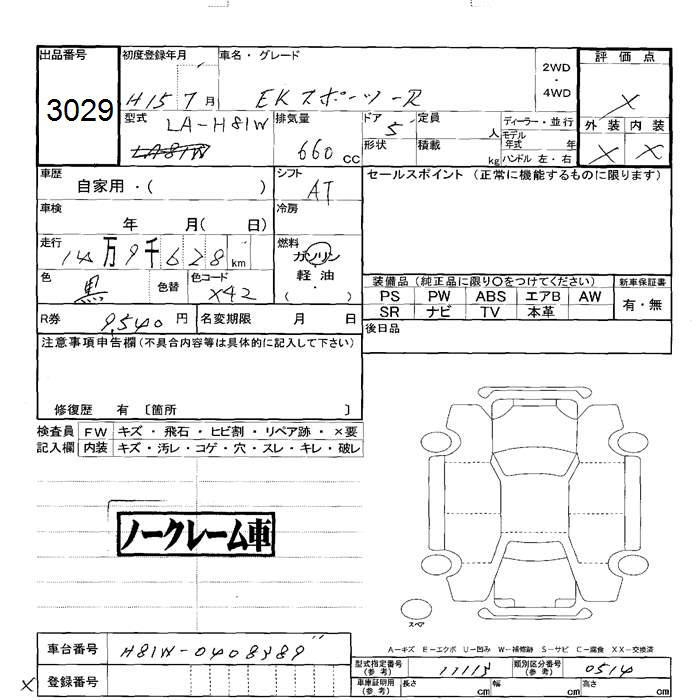 出品番号 初度登録年月 車名・グレード 2WD・4WD 評価点
3029 H15 7月 EKスポーツ-R X
型式 LA-H81W 排気量 660cc ドア 5 定員 人 ディーラー・並行 外装 内装
LA81W 形状 積載 kg モデル年式 年 ハンドル 左・右 X X
車歴 自家用・( ) シフト AT セールスポイント (正常に機能するものに限ります)
車検 年 月( 日) 冷房
走行 14万9千628km 燃料 ガソリン
色 黒 色替 色コード X42 軽油・( )
装備品 (純正品に限り〇をつけてください) 新車保証書
PS PW ABS エアB AW 有・無
SR ナビ TV 本革
R券 9,540円 名変期限 月 日 後日品
注意事項申告欄(不具合内容等は具体的に記入して下さい)
修復歴 有 〔箇所 〕
検査員 FW キズ・飛石・ヒビ割・リペア跡・×要
記入欄 内装 キズ・汚レ・コゲ・穴・スレ・キレ・破レ
ノークレーム車
スペア
A-キズ E-エクボ U-凹み W-補修跡 S-サビ C-腐食 XX-交換済
車台番号 H81W-0408389 型式指定番号(参考) 11113 類別区分番号(参考) 0514
X 登録番号 車庫証明用(参考) 長さ cm 幅 cm 高さ cm